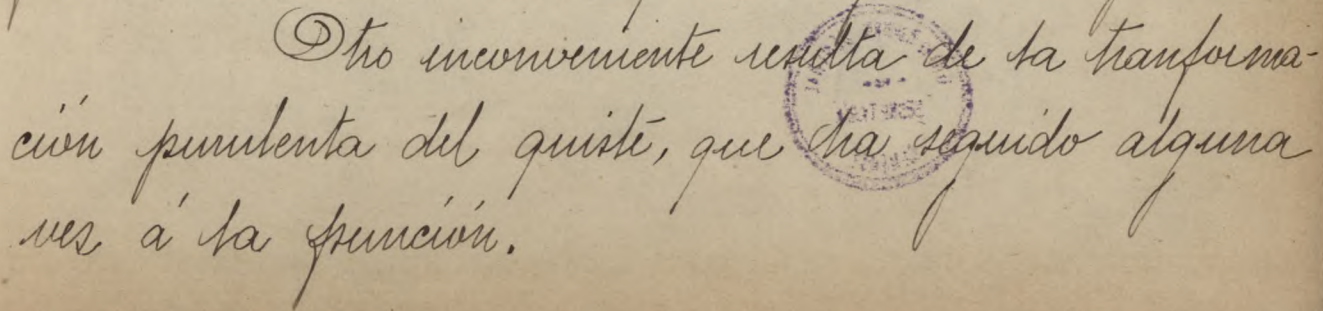 Otro inconveniente resulta de la tranforma-
ción purulenta del quiste, que ha seguido alguna
vez á la punción.